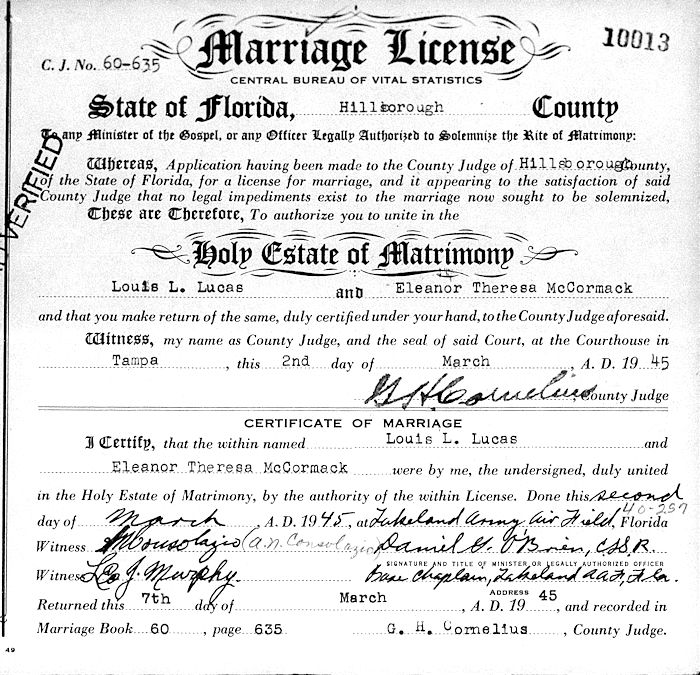 Marriage License
10013
C. J. No. 60-635
CENTRAL BUREAU OF VITAL STATISTICS
State of Florida, Hillsborough County
To any Minister of the Gospel, or any Officer Legally Authorized to Solemnize the Rite of Matrimony:
Whereas, Application having been made to the County Judge of Hillsborough County,
of the State of Florida, for a license for marriage, and it appearing to the satisfaction of said
County Judge that no legal impediments exist to the marriage now sought to be solemnized,
These are Therefore, To authorize you to unite in the
VERIFIED
Holy Estate of Matrimony
Louis L. Lucas and Eleanor Theresa McCormack
and that you make return of the same, duly certified under your hand, to the County Judge aforesaid.
Witness, my name as County Judge, and the seal of said Court, at the Courthouse in
Tampa, this 2nd day of March, A. D. 19 45
G H Cornelius, County Judge
CERTIFICATE OF MARRIAGE
I Certify, that the within named Louis L. Lucas and
Eleanor Theresa McCormack were by me, the undersigned, duly united
in the Holy Estate of Matrimony, by the authority of the within License. Done this second
40-257
day of March, A. D. 1945, at Lakeland Army Air Field, Florida
Witness A N Consolazio (A.N. Consolazio) Daniel G. O'Brien, C.SS.R.
SIGNATURE AND TITLE OF MINISTER OR LEGALLY AUTHORIZED OFFICER
Witness Leo J. Murphy. Base Chaplain, Lakeland AAF, Fla.
ADDRESS
Returned this 7th day of March, A. D. 19 45, and recorded in
Marriage Book 60, page 635 G. H. Cornelius, County Judge.
49